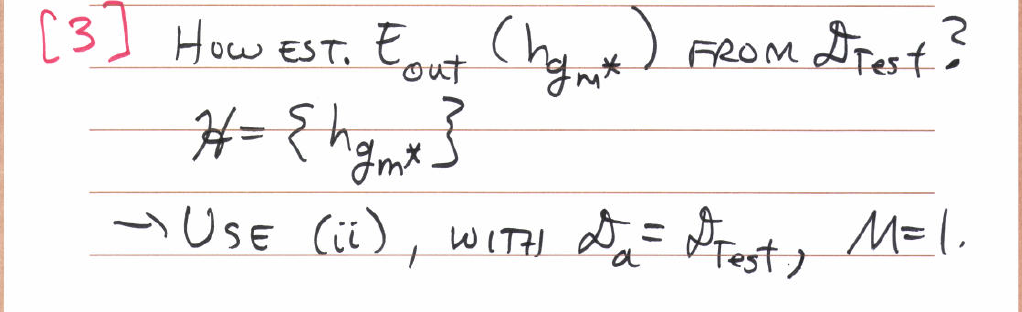 [3] HOW EST. E_out (h_{g_{m*}}) FROM 𝒟_Test?
ℋ = {h_{g_{m*}}}
→ USE (ii), WITH 𝒟_a = 𝒟_Test, M=1.